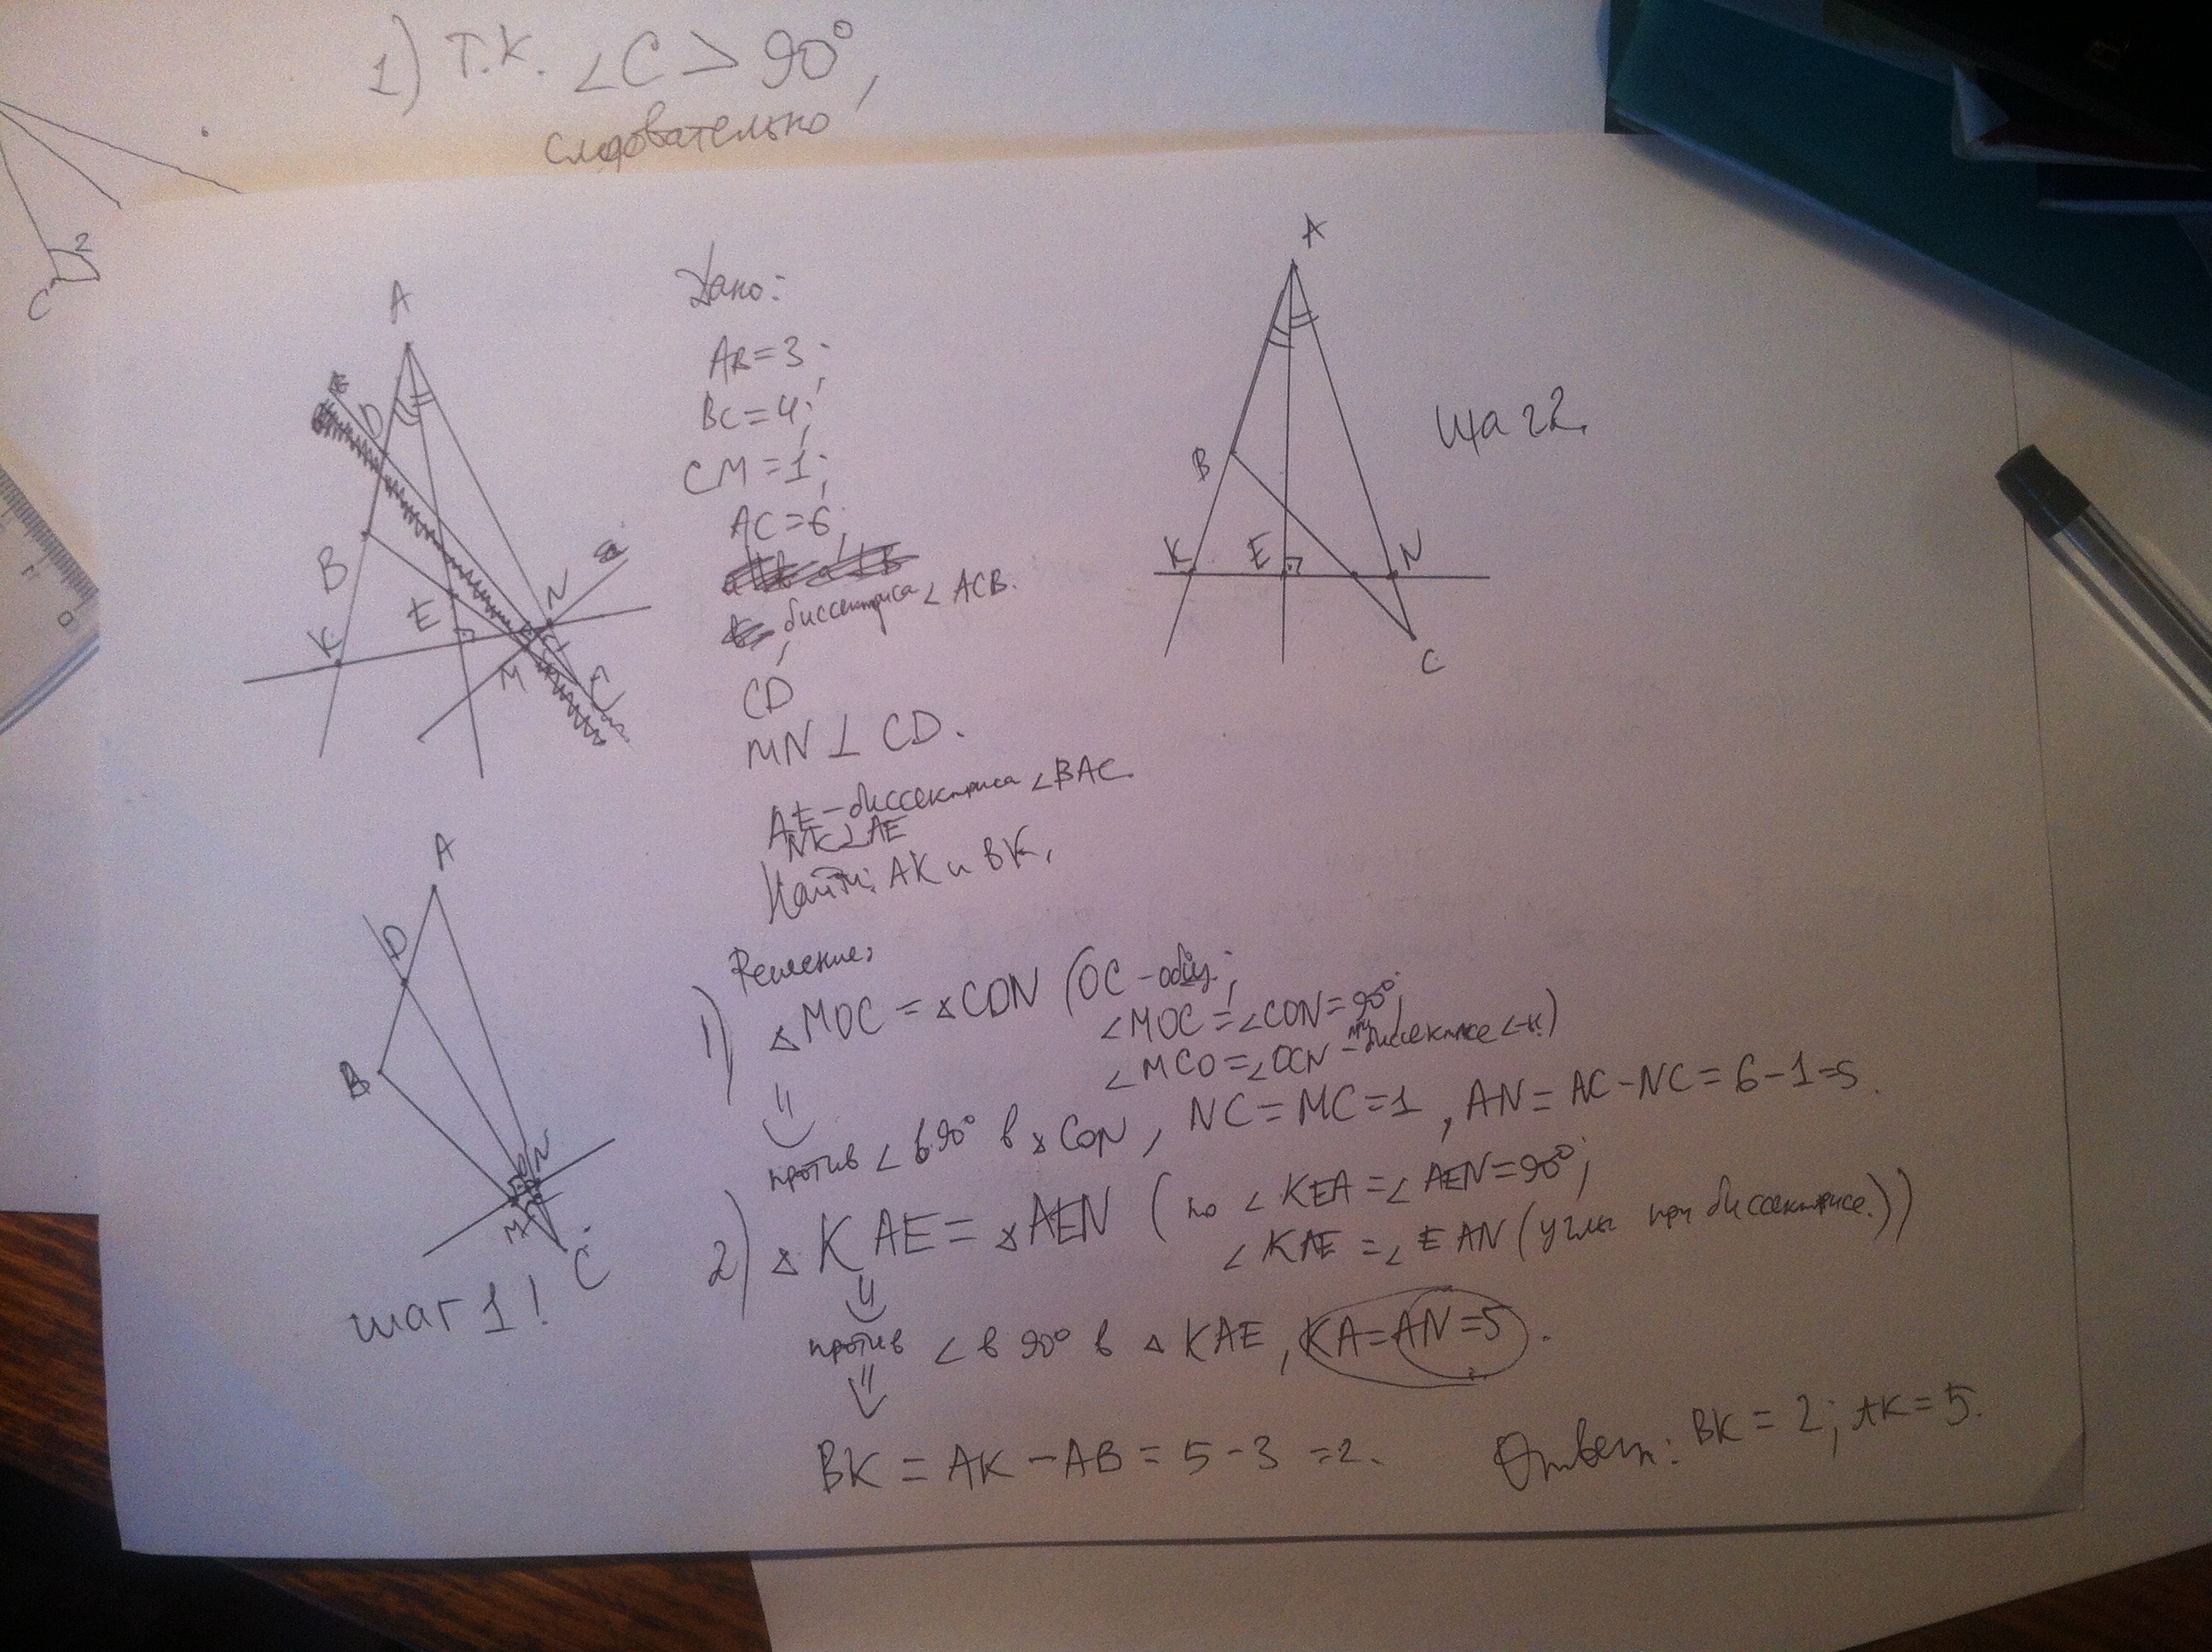 1) Т.К. ∠C > 90°,
следовательно
C
2
A
D
B
E
K
M
N
C
Дано:
AB = 3;
BC = 4;
CM = 1;
AC = 6;
биссектриса ∠ ACB.
CD
MN ⊥ CD.
AE – биссектриса ∠BAC.
NK ⊥ AE
Найти: AK и BK.
A
B
K
E
N
C
шаг 2.
A
D
B
O
N
M
C
шаг 1!
Решение:
1) △ MOC = △ CON (OC – общ.;
∠MOC = ∠CON = 90°;
∠MCO = ∠OCN – при биссектрисе)
⇓
против ∠ в 90° в △ CON, NC = MC = 1, AN = AC – NC = 6 – 1 = 5.
2) △ KAE = △ AEN (по ∠ KEA = ∠ AEN = 90°;
∠ KAE = ∠ EAN (углы при биссектрисе.))
⇓
против ∠ в 90° в △ KAE, KA = AN = 5.
⇓
BK = AK – AB = 5 – 3 = 2.
Ответ: BK = 2; AK = 5.